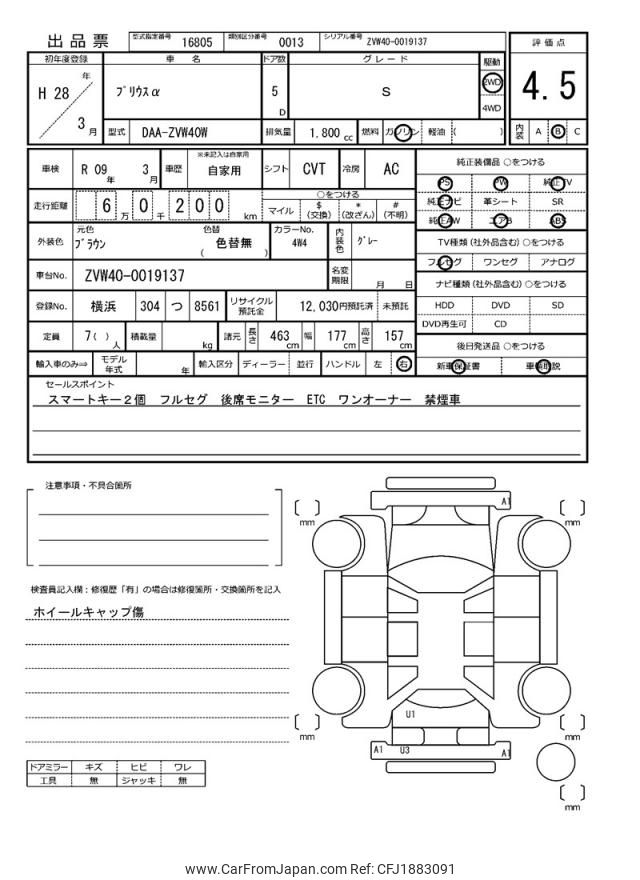 出品票
型式指定番号 16805 類別区分番号 0013 シリアル番号 ZVW40-0019137
初年度登録 車 名 ドア数 グレード 駆動 評価点
H 28 年 3 月 プリウスα 5 D S 2WD 4WD 4.5
型式 DAA-ZVW40W 排気量 1.800 cc 燃料 ガソリン 軽油 ( ) 内装 A B C
車検 R 09 年 3 月 車歴 ※未記入は自家用 自家用 シフト CVT 冷房 AC
純正装備品 ○をつける
PS PW 純正TV
純正ナビ 革シート SR
純正AW エアB ABS
走行距離 6 万 0 千 200 km
○をつける
マイル $ (交換) * (改ざん) # (不明)
外装色 元色 ブラウン 色替 色替無 ( ) カラーNo. 4W4 内装色 グレー
TV種類(社外品含む)○をつける
フルセグ ワンセグ アナログ
車台No. ZVW40-0019137 名変期限 月 日
ナビ種類(社外品含む)○をつける
HDD DVD SD
DVD再生可 CD
登録No. 横浜 304 つ 8561 リサイクル預託金 12,030円預託済 未預託
定員 7( ) 人 積載量 kg 諸元 長さ 463 cm 幅 177 cm 高さ 157 cm
後日発送品 ○をつける
新車保証書 車輌取説
輸入車のみ⇒ モデル年式 年 輸入区分 ディーラー 並行 ハンドル 左 右
セールスポイント
スマートキー2個 フルセグ 後席モニター ETC ワンオーナー 禁煙車
注意事項・不具合箇所
検査員記入欄:修復歴「有」の場合は修復箇所・交換箇所を記入
ホイールキャップ傷
A1
mm
mm
U1
mm
mm
A1 U3 A1
mm
ドアミラー キズ ヒビ ワレ
工具 無 ジャッキ 無
www.CarFromJapan.com Ref: CFJ1883091